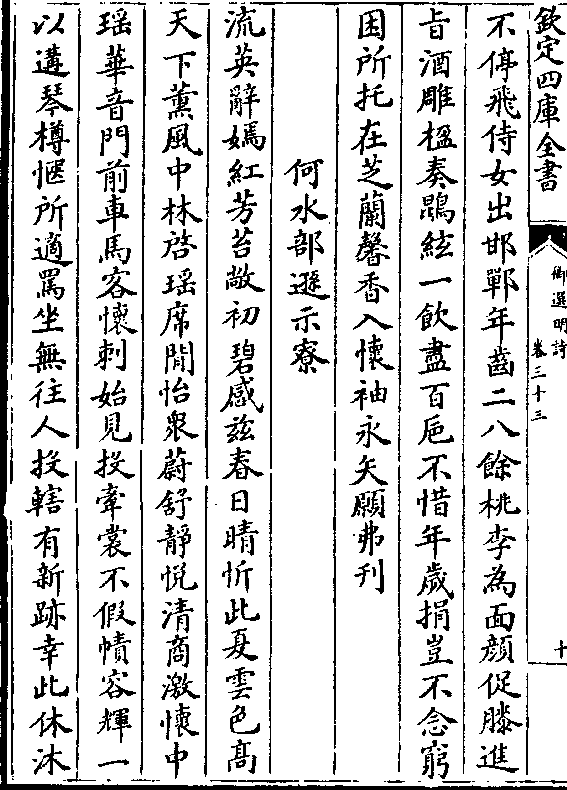 欽定四庫全書
御選明詩
卷三十三
十
不停飛侍女出邯鄲年齒二八餘桃李為面顔促膝進
旨酒雕楹奏鵾絃一飲盡百巵不惜年歲捐豈不念窮
困所托在芝蘭馨香入懷袖永矢願弗刊
何水部遜示寮
流英辭嫣紅芳苔敞初碧感兹春日晴忻此夏雲色髙
天下薰風中林啓瑶席閒怡衆蔚舒靜悅清商激懷中
瑶華音門前車馬客懷刺始見投牽裳不假幘容輝一
以遘琴樽愜所適罵坐無往人投轄有新跡幸此休沐